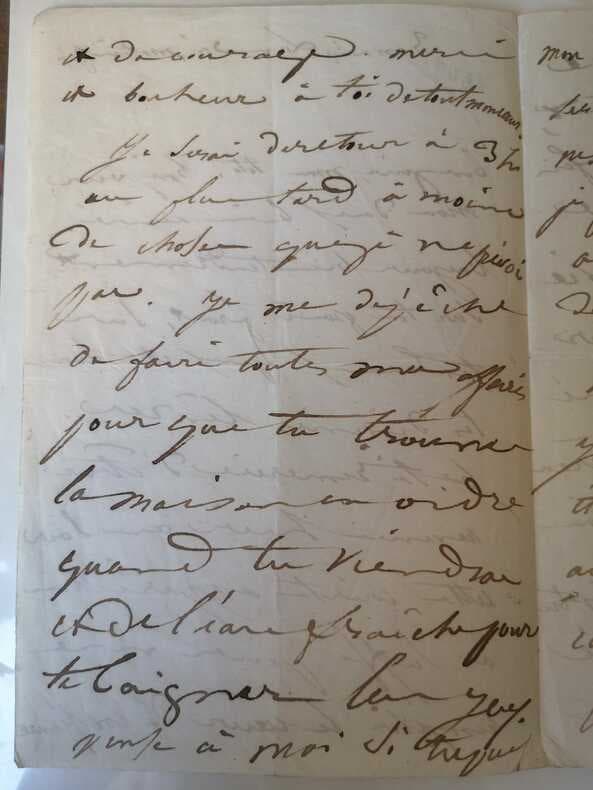 et de courage. merci
et bonheur à toi de tout mon cœur.
Je serai de retour à 3h
au plus tard à moins
de choses que je ne prévoi
pas. Je me dépêche
de faire toutes mes affaires
pour que tu trouves
la maison en ordre
quand tu viendras
et de l'eau fraîche pour
te baigner les yeux.
pense à moi si tu peux
mon